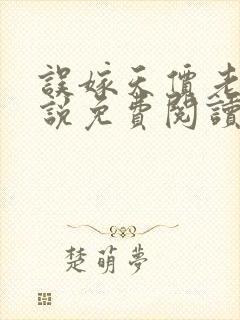 誤嫁天價老
説免費閱讀
楚萌夢